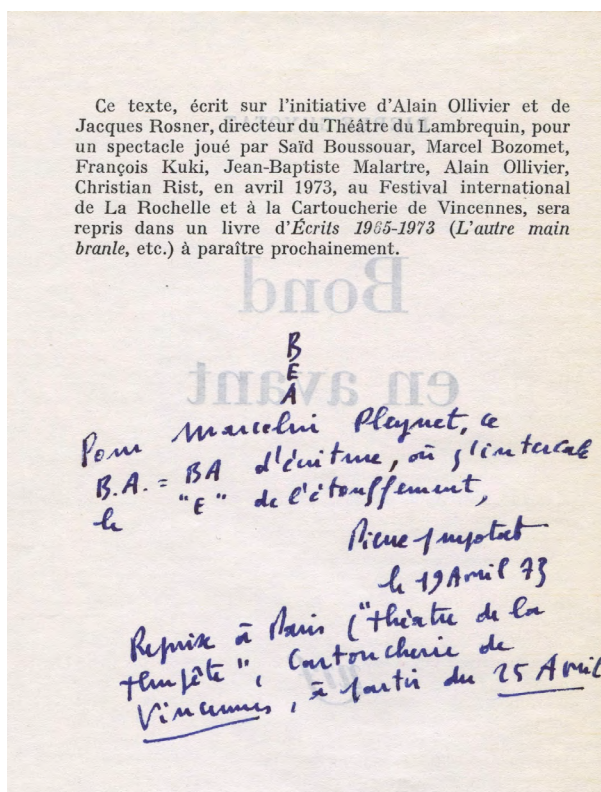 Ce texte, écrit sur l'initiative d'Alain Ollivier et de
Jacques Rosner, directeur du Théâtre du Lambrequin, pour
un spectacle joué par Saïd Boussouar, Marcel Bozomet,
François Kuki, Jean-Baptiste Malartre, Alain Ollivier,
Christian Rist, en avril 1973, au Festival international
de La Rochelle et à la Cartoucherie de Vincennes, sera
repris dans un livre d'Écrits 1965-1973 (L'autre main
branle, etc.) à paraître prochainement.
Bond
en avant
B
E
A
Pour Marcelin Pleynet, ce
B.A. = BA d'écriture, où s'intercale
le "E" de l'étouffement,
Pierre Guyotat
le 19 Avril 73
Reprise à Paris ("théâtre de la
tempête", Cartoucherie de
Vincennes, à partir du 25 Avril